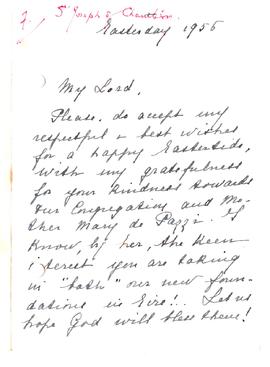 St Joseph of Chambéry
Easterday 1956
My Lord,
Please, do accept my
respectful & best wishes
for a happy Eastertide,
with my gratefulness
for your kindness towards
our Congregation and Mo-
ther Mary de Pazzi. I
know, by her, the keen
interest you are taking
in "both" our new foun-
dations in Eire!.. Let us
hope God will bless them!